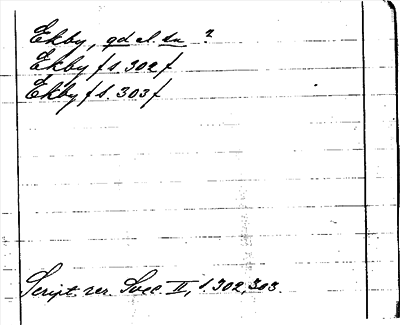 Ekby, gd el. sn ?
Ekby f s. 302 f
Ekby f s. 303 f
Script. rer. Svec. II, s. 302, 303.